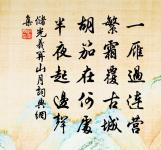 一雁過連營
繁霜覆古城
胡笳在何處
半夜起邊聲
儲光羲關山月詞典網
集